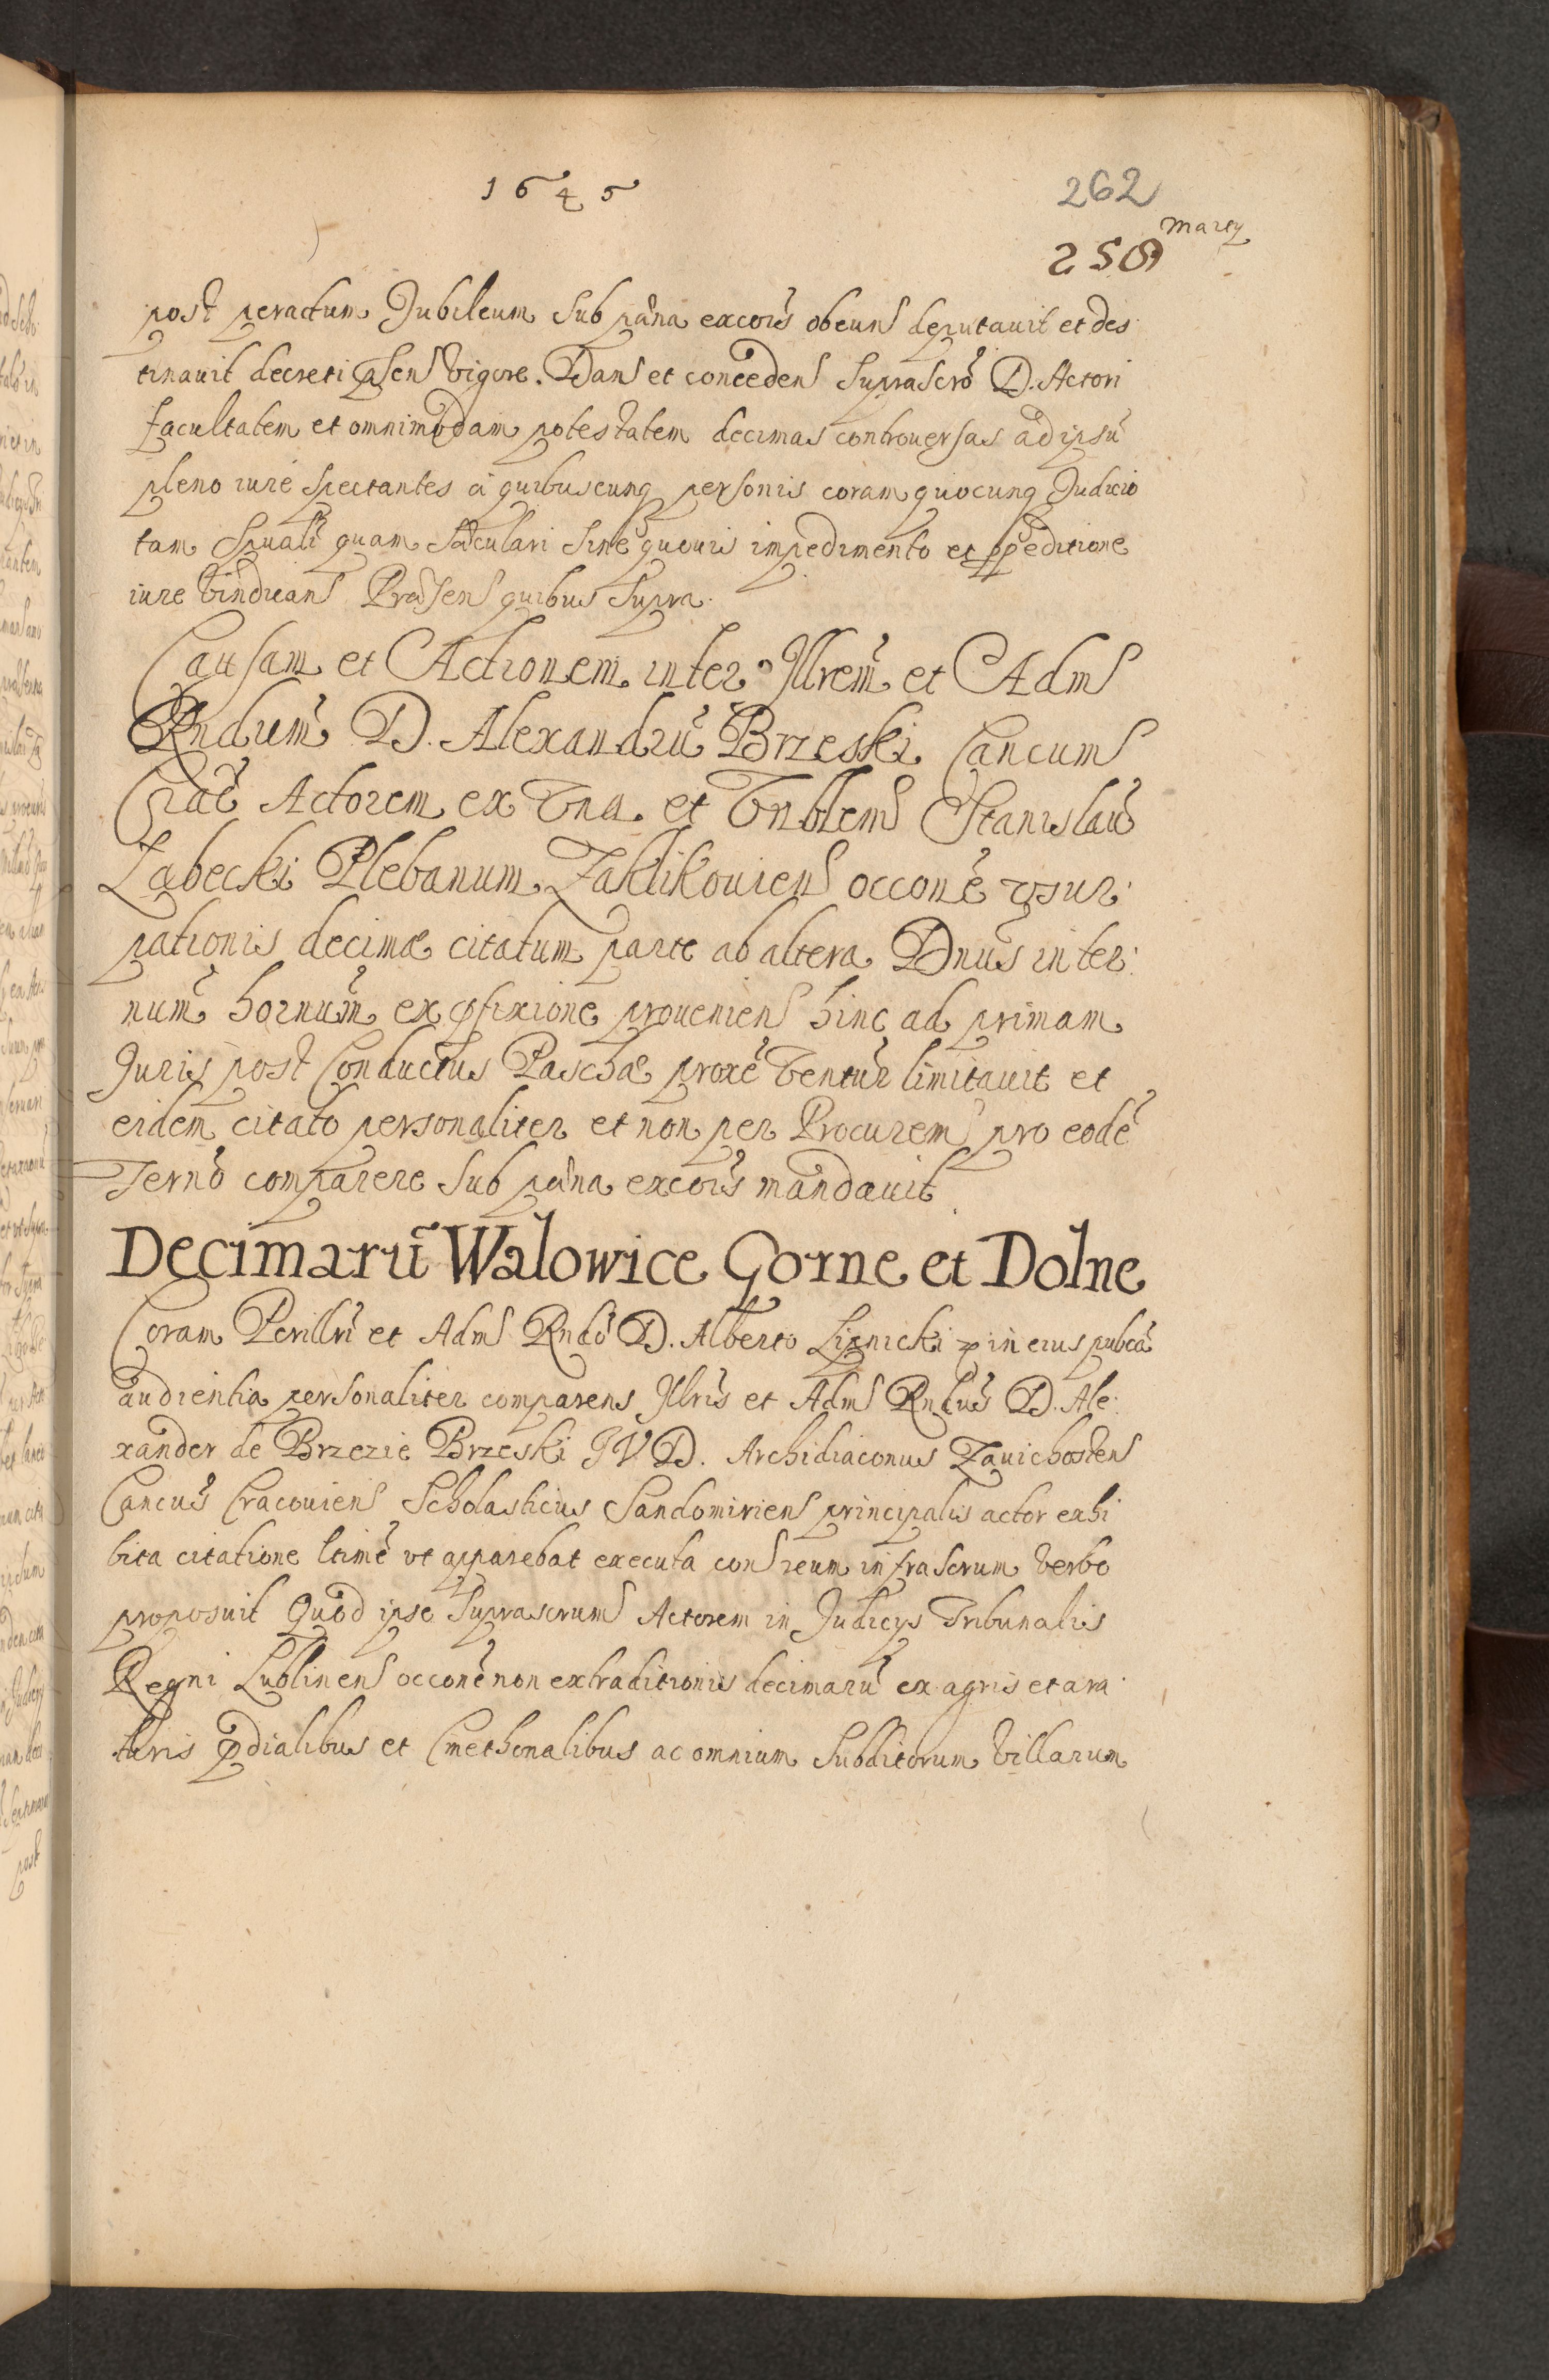 1645
262
Marty
258
post peractum Jubileum sub pæna excōis obeuns deputauit et des
tinauit decreti psens vigore. Dans et concedens suprascrō D. Actori
facultatem et omnimodam potestatem decimas controuersas ad ipsū
pleno iure spectantes à quibuscunq personis coram quocunq Judicio
tam Spuali quam sæculari sine quouis impedimento et ppeditione
iure vindicans Præsen quibus supra.
Causam et Actionem inter Illrem et Adms
Rndum D. Alexandrū Brzeski Cancum
Crac Actorem ex vna et Vnblem Stanislaū
Labecki Plebanum Zaklikouiens occone vsur:
pationis decimæ citatum parte ab altera Dnus inter:
num hornum ex pfixione proueniens hinc ad primam
Juris post Conductus Paschæ proxe ventur limitauit et
eidem citato personaliter et non per Procurem pro eodē
Terno comparere sub pæna excois mandauit
Decimarū Walowice Gorne et Dolne
Coram Perillri et Adms Rndo D. Alberto Lipnicki in eius pubca
audientia personaliter comparens Illris et Adms Rndus D. Ale:
xander de Brzezie Brzeski JVD. Archidiaconus Zauichostens
Cancus Cracouiens Scholasticus Sandomiriens principalis actor exhi
bita citatione ltime vt apparebat executa cons reum infrascrum verbo
proposuit Quod ipse suprascrum Actorem in Judicys Tribunalis
Regni Lublinens occone non extraditionis decimarū ex agris et ara
turis pdialibus et Cmethonalibus ac omnium subditorum villarum